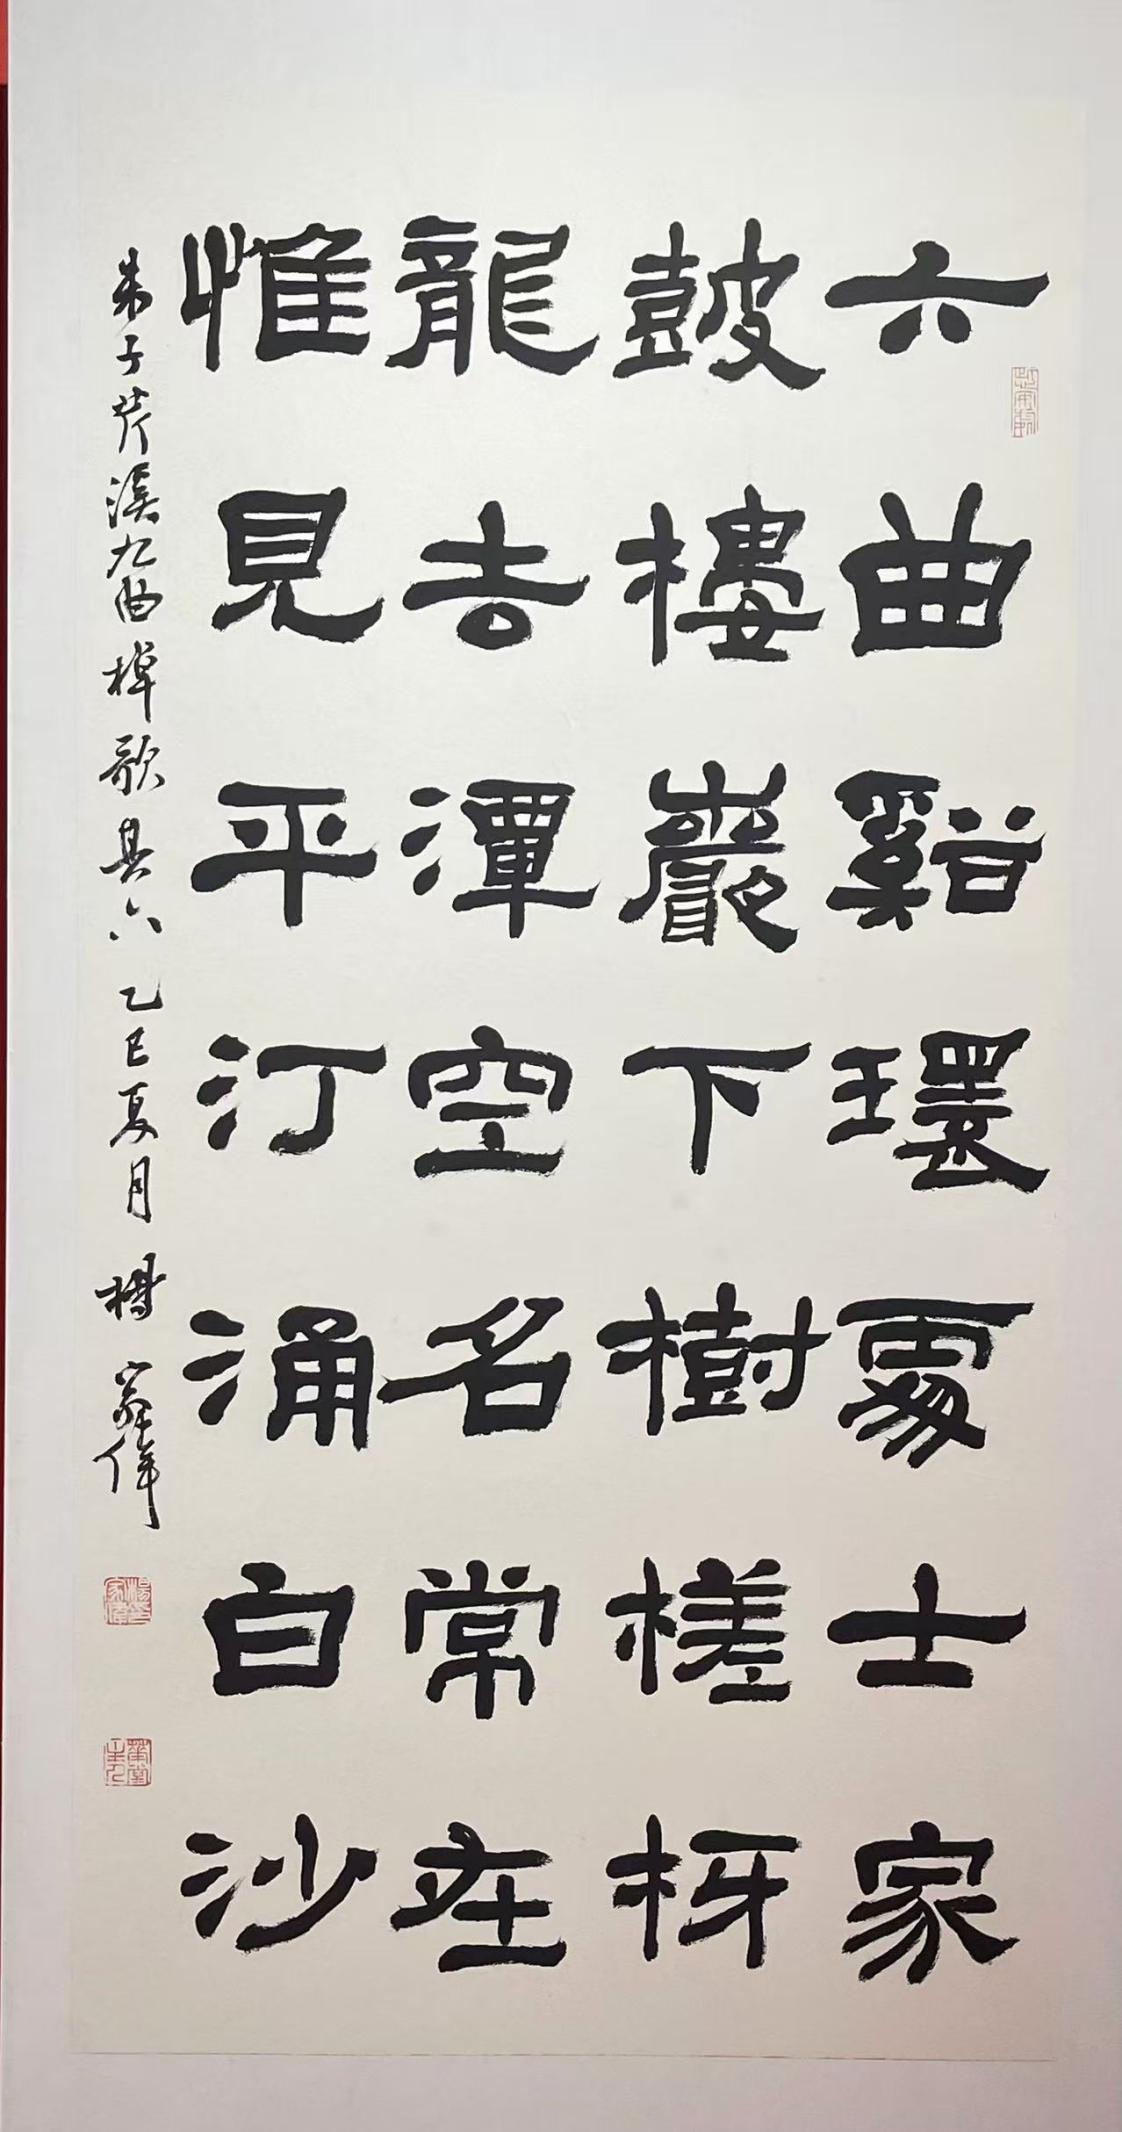 六曲谿環覆士家
鼓樓巖下樹槎枒
龍去潭空名常在
惟見平汀涌白沙
朱子芹溪九曲棹歌其六 乙巳夏月 楊家偉